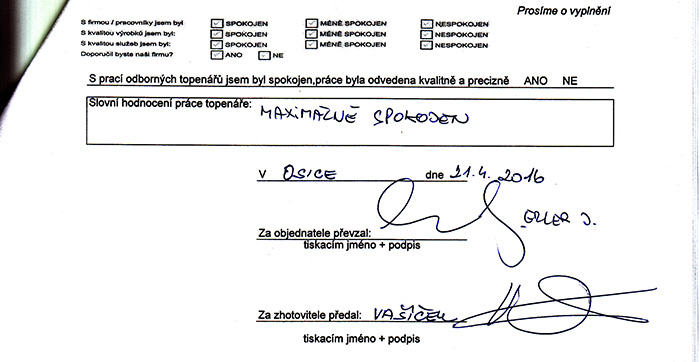 Prosíme o vyplnění
S firmou / pracovníky jsem byl SPOKOJEN MÉNĚ SPOKOJEN NESPOKOJEN
S kvalitou výrobků jsem byl: SPOKOJEN MÉNĚ SPOKOJEN NESPOKOJEN
S kvalitou služeb jsem byl: SPOKOJEN MÉNĚ SPOKOJEN NESPOKOJEN
Doporučil byste naši firmu? ANO NE
S prací odborných topenářů jsem byl spokojen,práce byla odvedena kvalitně a precizně ANO NE
Slovní hodnocení práce topenáře: MAXIMÁLNĚ SPOKOJEN
V OSICE dne 21.4. 2016
ELLER J.
Za objednatele převzal:
tiskacím jméno + podpis
Za zhotovitele předal: VAŠÍČEK
tiskacím jméno + podpis